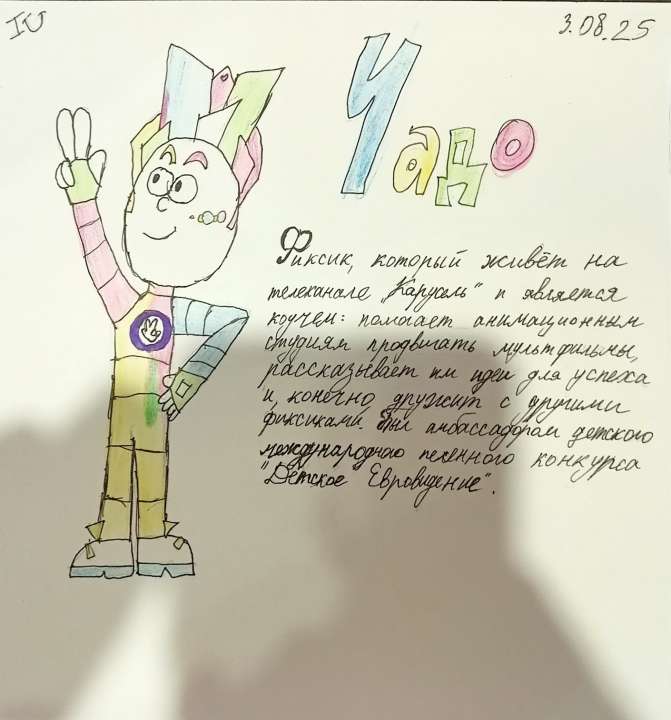 IU
3.08.25
Чадо
Фиксик, который живёт на
телеканале „Карусель" и является
коучем: помогает анимационным
студиям продвигать мультфильмы,
рассказывает им идеи для успеха
и, конечно дружит с другими
фиксиками. Был амбассадором детского
международного песенного конкурса
"Детское Евровидение".